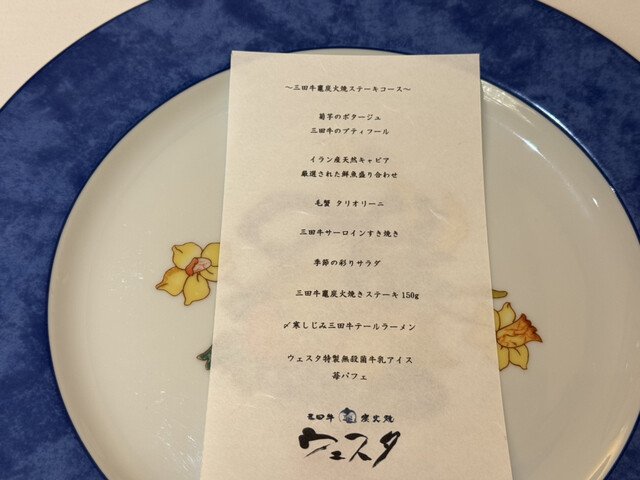 ～三田牛竈炭火焼ステーキコース～
菊芋のポタージュ
三田牛のプティフール
イラン産天然キャビア
厳選された鮮魚盛り合わせ
毛蟹 タリオリーニ
三田牛サーロインすき焼き
季節の彩りサラダ
三田牛竈炭火焼きステーキ150g
〆寒しじみ三田牛テールラーメン
ウェスタ特製無殺菌牛乳アイス
苺パフェ
三田牛 炭火焼
ウェスタ